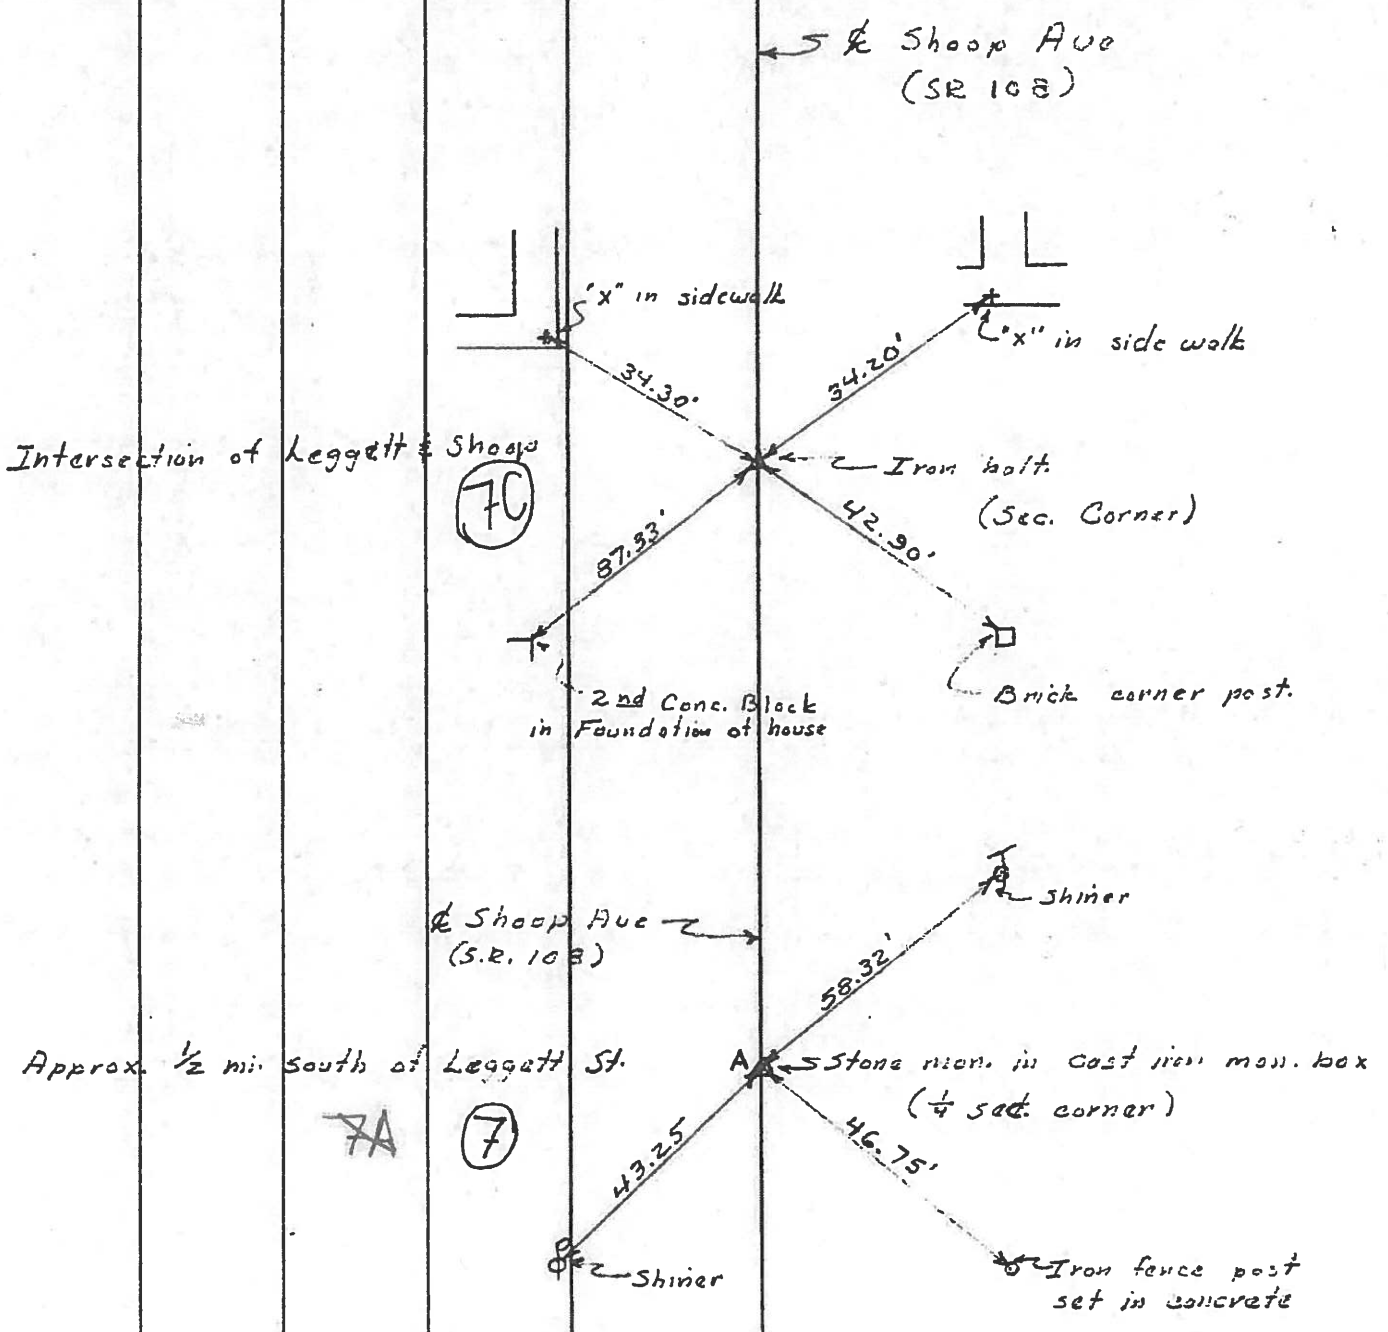 ℄ Shoop Ave
(SR 108)
"x" in sidewalk
"x" in side walk
34.30'
34.20'
Intersection of Leggett & Shoop
7C
Iron bolt.
(Sec. Corner)
87.33'
42.90'
2nd Conc. Block
in Foundation of house
Brick corner post.
Shiner
℄ Shoop Ave
(S.R. 108)
58.32'
Approx. 1/2 mi. south of Leggett St.
A
Stone mon. in cast iron mon. box
(1/4 sec. corner)
7A
7
43.25
46.75'
Shiner
Iron fence post
set in concrete